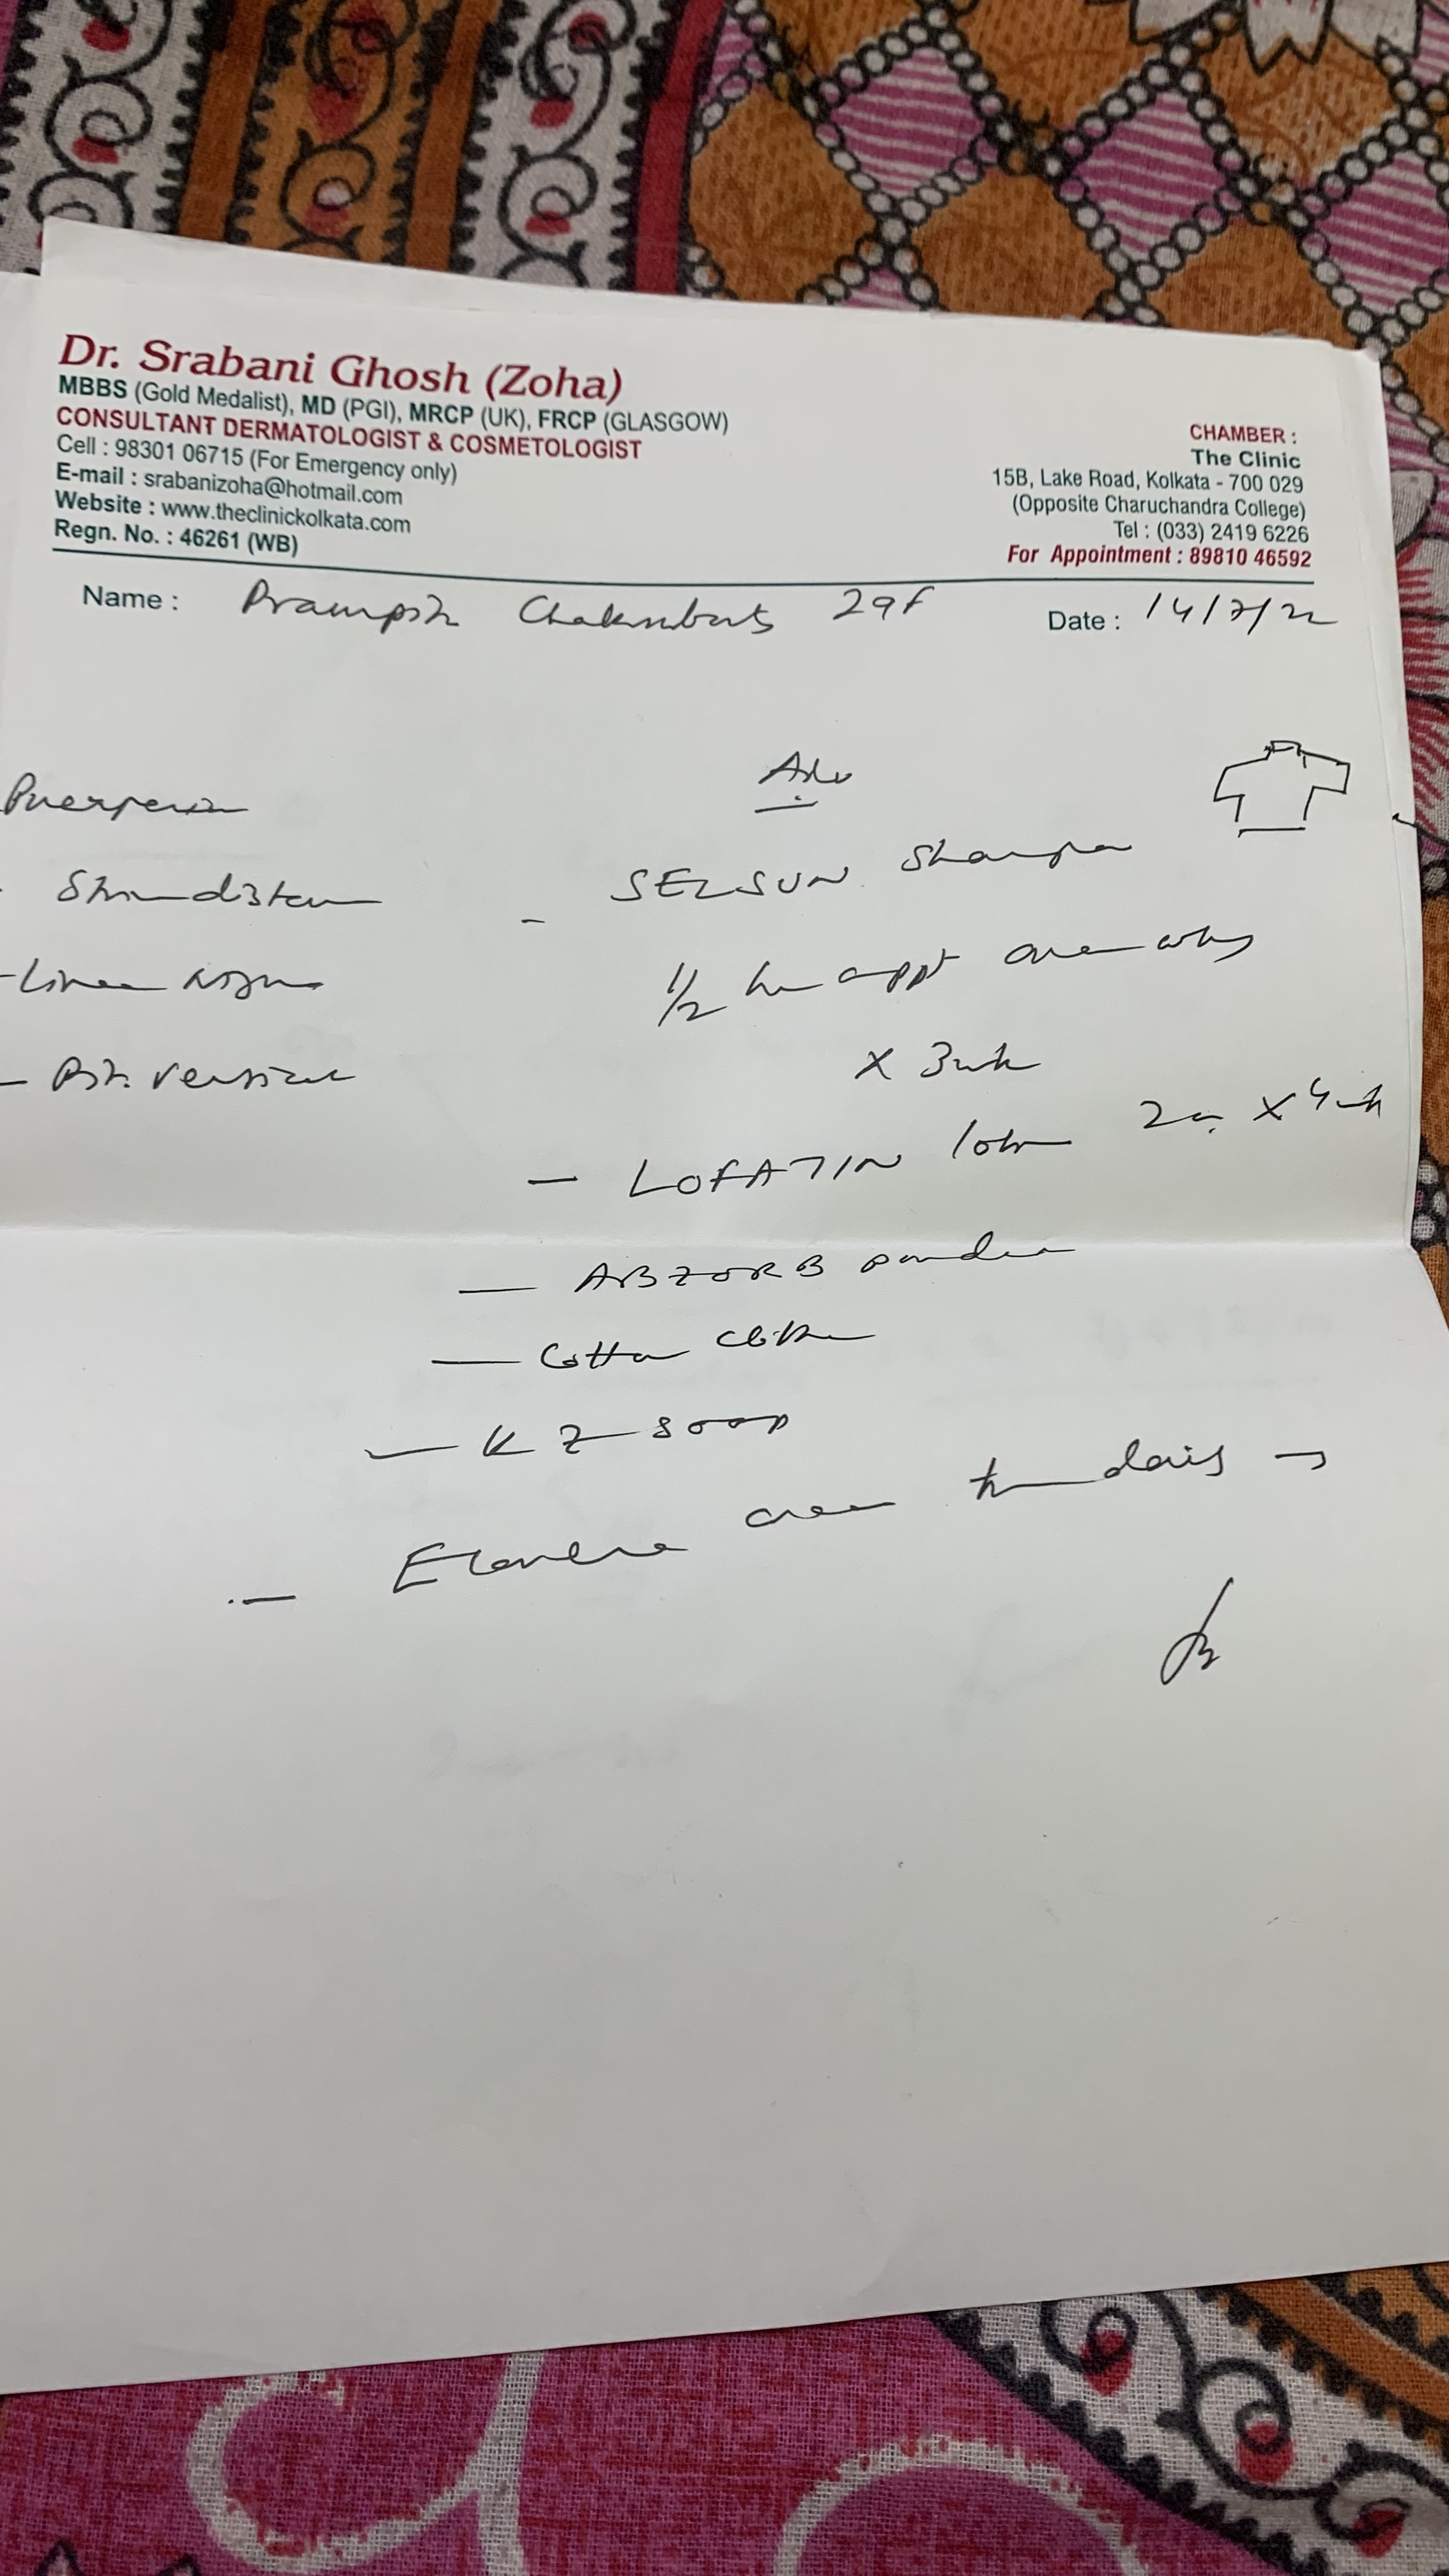 Dr. Srabani Ghosh (Zoha)
MBBS (Gold Medalist), MD (PGI), MRCP (UK), FRCP (GLASGOW)
CONSULTANT DERMATOLOGIST & COSMETOLOGIST
Cell : 98301 06715 (For Emergency only)
E-mail : srabanizoha@hotmail.com
Website : www.theclinickolkata.com
Regn. No. : 46261 (WB)
CHAMBER :
The Clinic
15B, Lake Road, Kolkata - 700 029
(Opposite Charuchandra College)
Tel : (033) 2419 6226
For Appointment : 89810 46592
Name : 29F
Date : 14/7/22
Adv
SELSUN Shampoo
1/2 hr appl once wkly
x 3wk
- LOFATIN lotn x 4wk
- ABZORB powder
- Cotton clothes
- KZ soap
cream